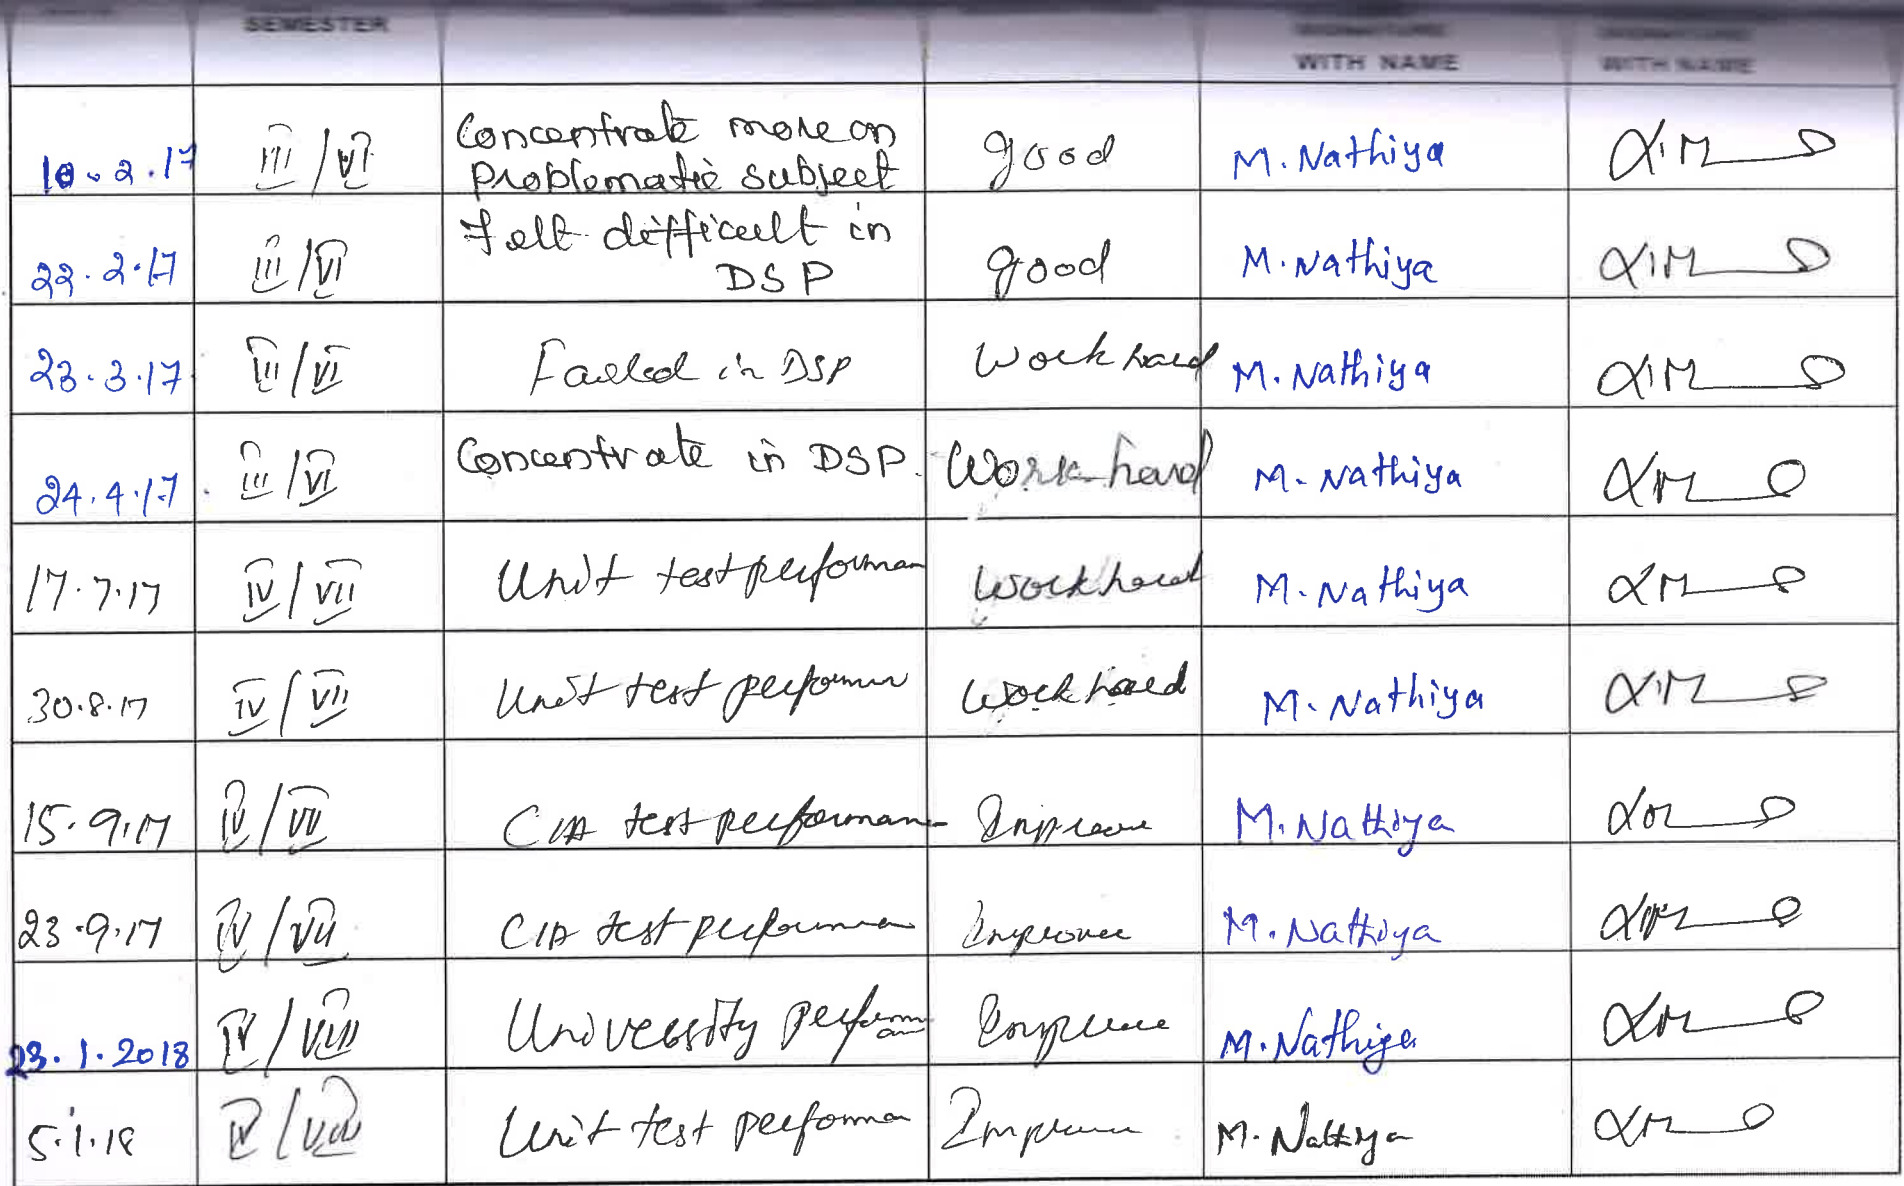 SEMESTER
WITH NAME WITH NAME
10.2.17 III/VI Concentrate more on good M. Nathiya
Problematic subject
22.2.17 III/VI Felt difficult in good M. Nathiya
DSP
23.3.17 III/VI Failed in DSP Work hard M. Nathiya
24.4.17 III/VI Concentrate in DSP. Work hard M. Nathiya
17.7.17 IV/VII Unit test performan Work hard M. Nathiya
30.8.17 IV/VII Unit test performan Work hard M. Nathiya
15.9.17 IV/VII CIA test performan Improve M. Nathiya
23.9.17 IV/VII CIA test performan Improve M. Nathiya
23.1.2018 IV/VIII University perform Improve M. Nathiya
an
5.1.18 IV/VIII Unit test performan Improve M. Nathiya